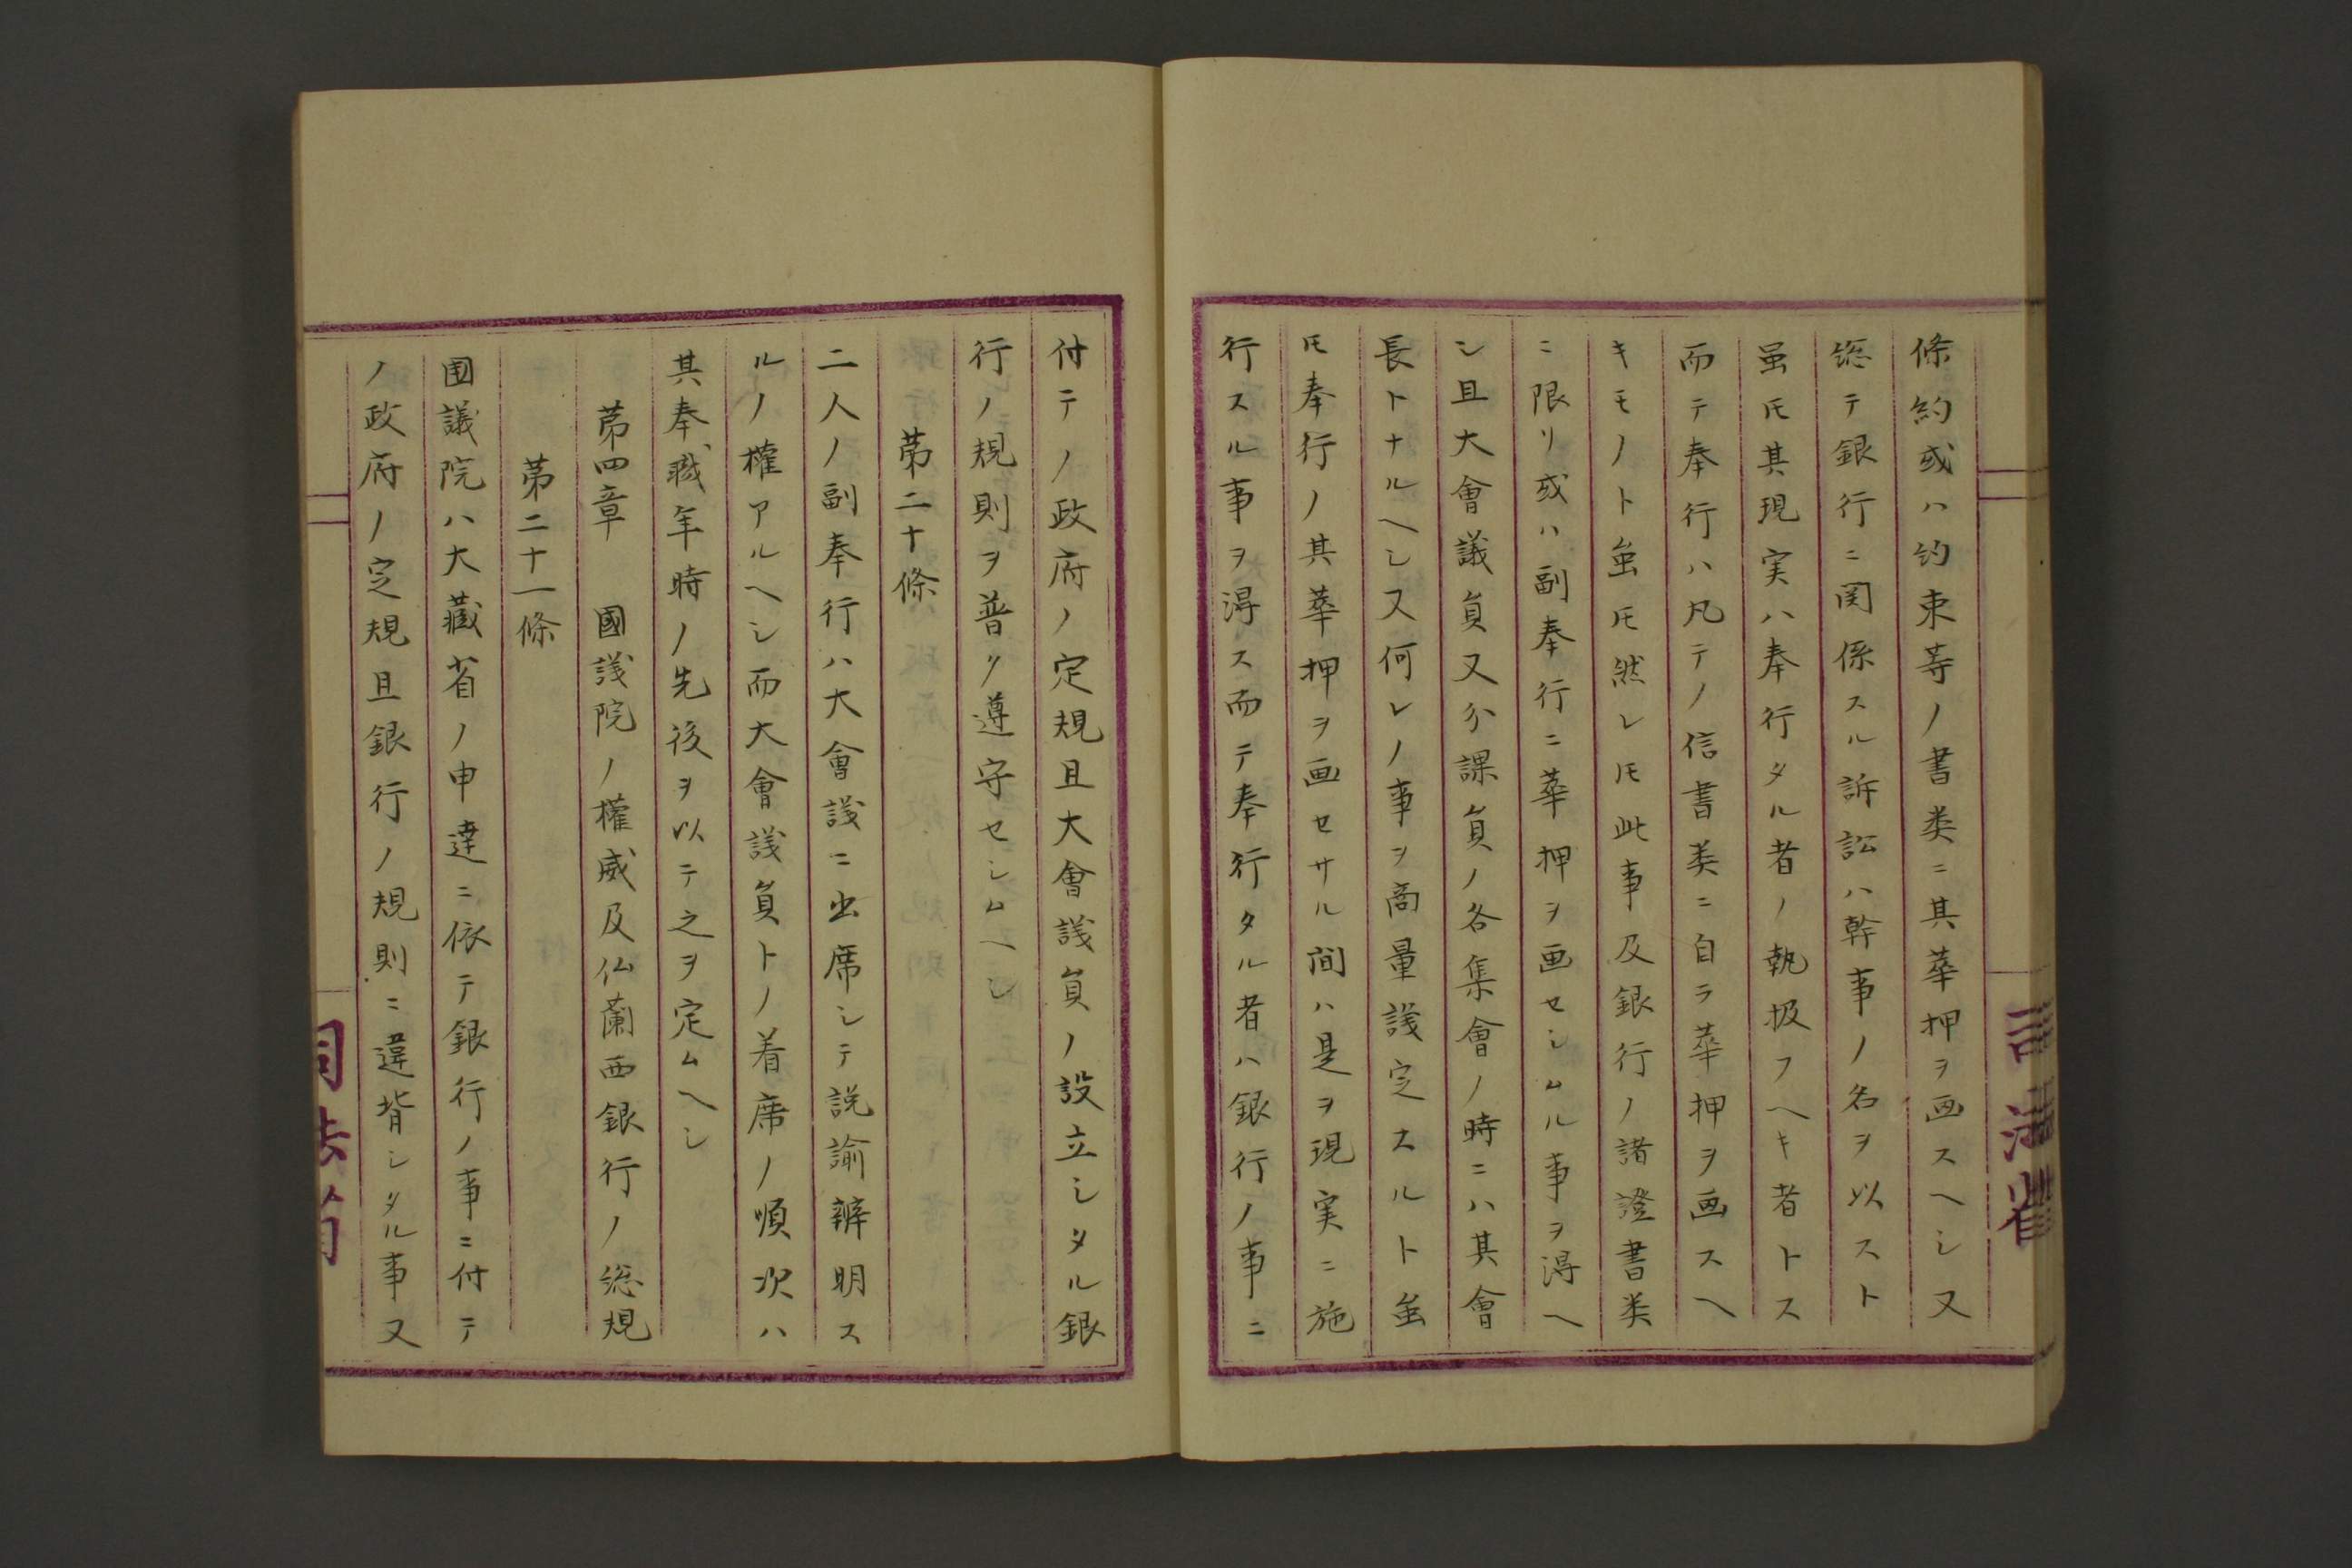 條約或ハ約束等ノ書类ニ其華押ヲ画スヘシ又
総テ銀行ニ関係スル訴訟ハ幹事ノ名ヲ以スト
虽𪜈其現実ハ奉行タル者ノ執扱フヘキ者トス
而テ奉行ハ凡テノ信書类ニ自ラ華押ヲ画スヘ
キモノト虽𪜈然レ𪜈此事及銀行ノ諸證書类
ニ限リ或ハ副奉行ニ華押ヲ画セシムル事ヲ淂ヘ
シ且大會議員又分課員ノ各集會ノ時ニハ其會
長トナルヘシ又何レノ事ヲ商量議定スルト虽
𪜈奉行ノ其華押ヲ画セサル間ハ是ヲ現実ニ施
行スル事ヲ淂ス而テ奉行タル者ハ銀行ノ事ニ
司法省
付テノ政府ノ定規且大會議員ノ設立シタル銀
行ノ規則ヲ普ク遵守セシムヘシ
第二十條
二人ノ副奉行ハ大會議ニ出席シテ説諭辨明ス
ルノ權アルヘシ而大會議員トノ着席ノ順次ハ
其奉職年時ノ先後ヲ以テ之ヲ定ムヘシ
第四章 國議院ノ權威及仏蘭西銀行ノ総規
第二十一條
国議院ハ大藏省ノ申達ニ依テ銀行ノ事ニ付テ
ノ政府ノ定規且銀行ノ規則ニ違背シタル事又
司法省